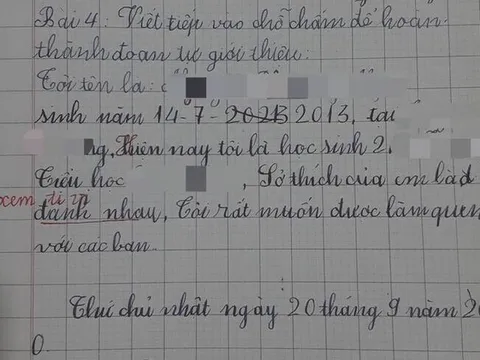 Bài 4: Viết tiếp vào chỗ chấm để hoàn
thành đoạn tự giới thiệu:
Tôi tên là:
sinh năm 14-7-20213 2013, tại
ng, Hiện nay tôi là học sinh 2.
Tiểu học , Sở thích của em là đ
đánh nhau, Tôi rất muốn được làm quen
với các bạn.
Thứ chủ nhật ngày 20 tháng 9 năm 2
0